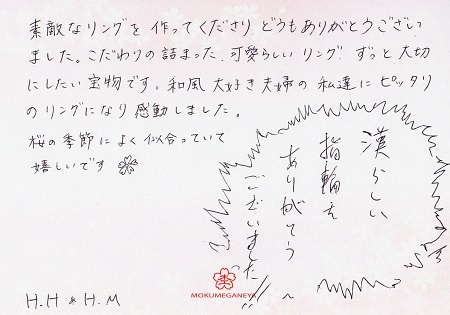 素敵なリングを作ってくださり どうもありがとうござい
ました。こだわりの詰まった、可愛らしいリング ずっと大切
にしたい宝物です。和風大好き夫婦の私達にピッタリ
のリングになり感動しました。
桜の季節によく似合っていて
嬉しいです
漢らしい
指輪を
ありがとう
ございました!!
H.H & H.M
MOKUMEGANEYA